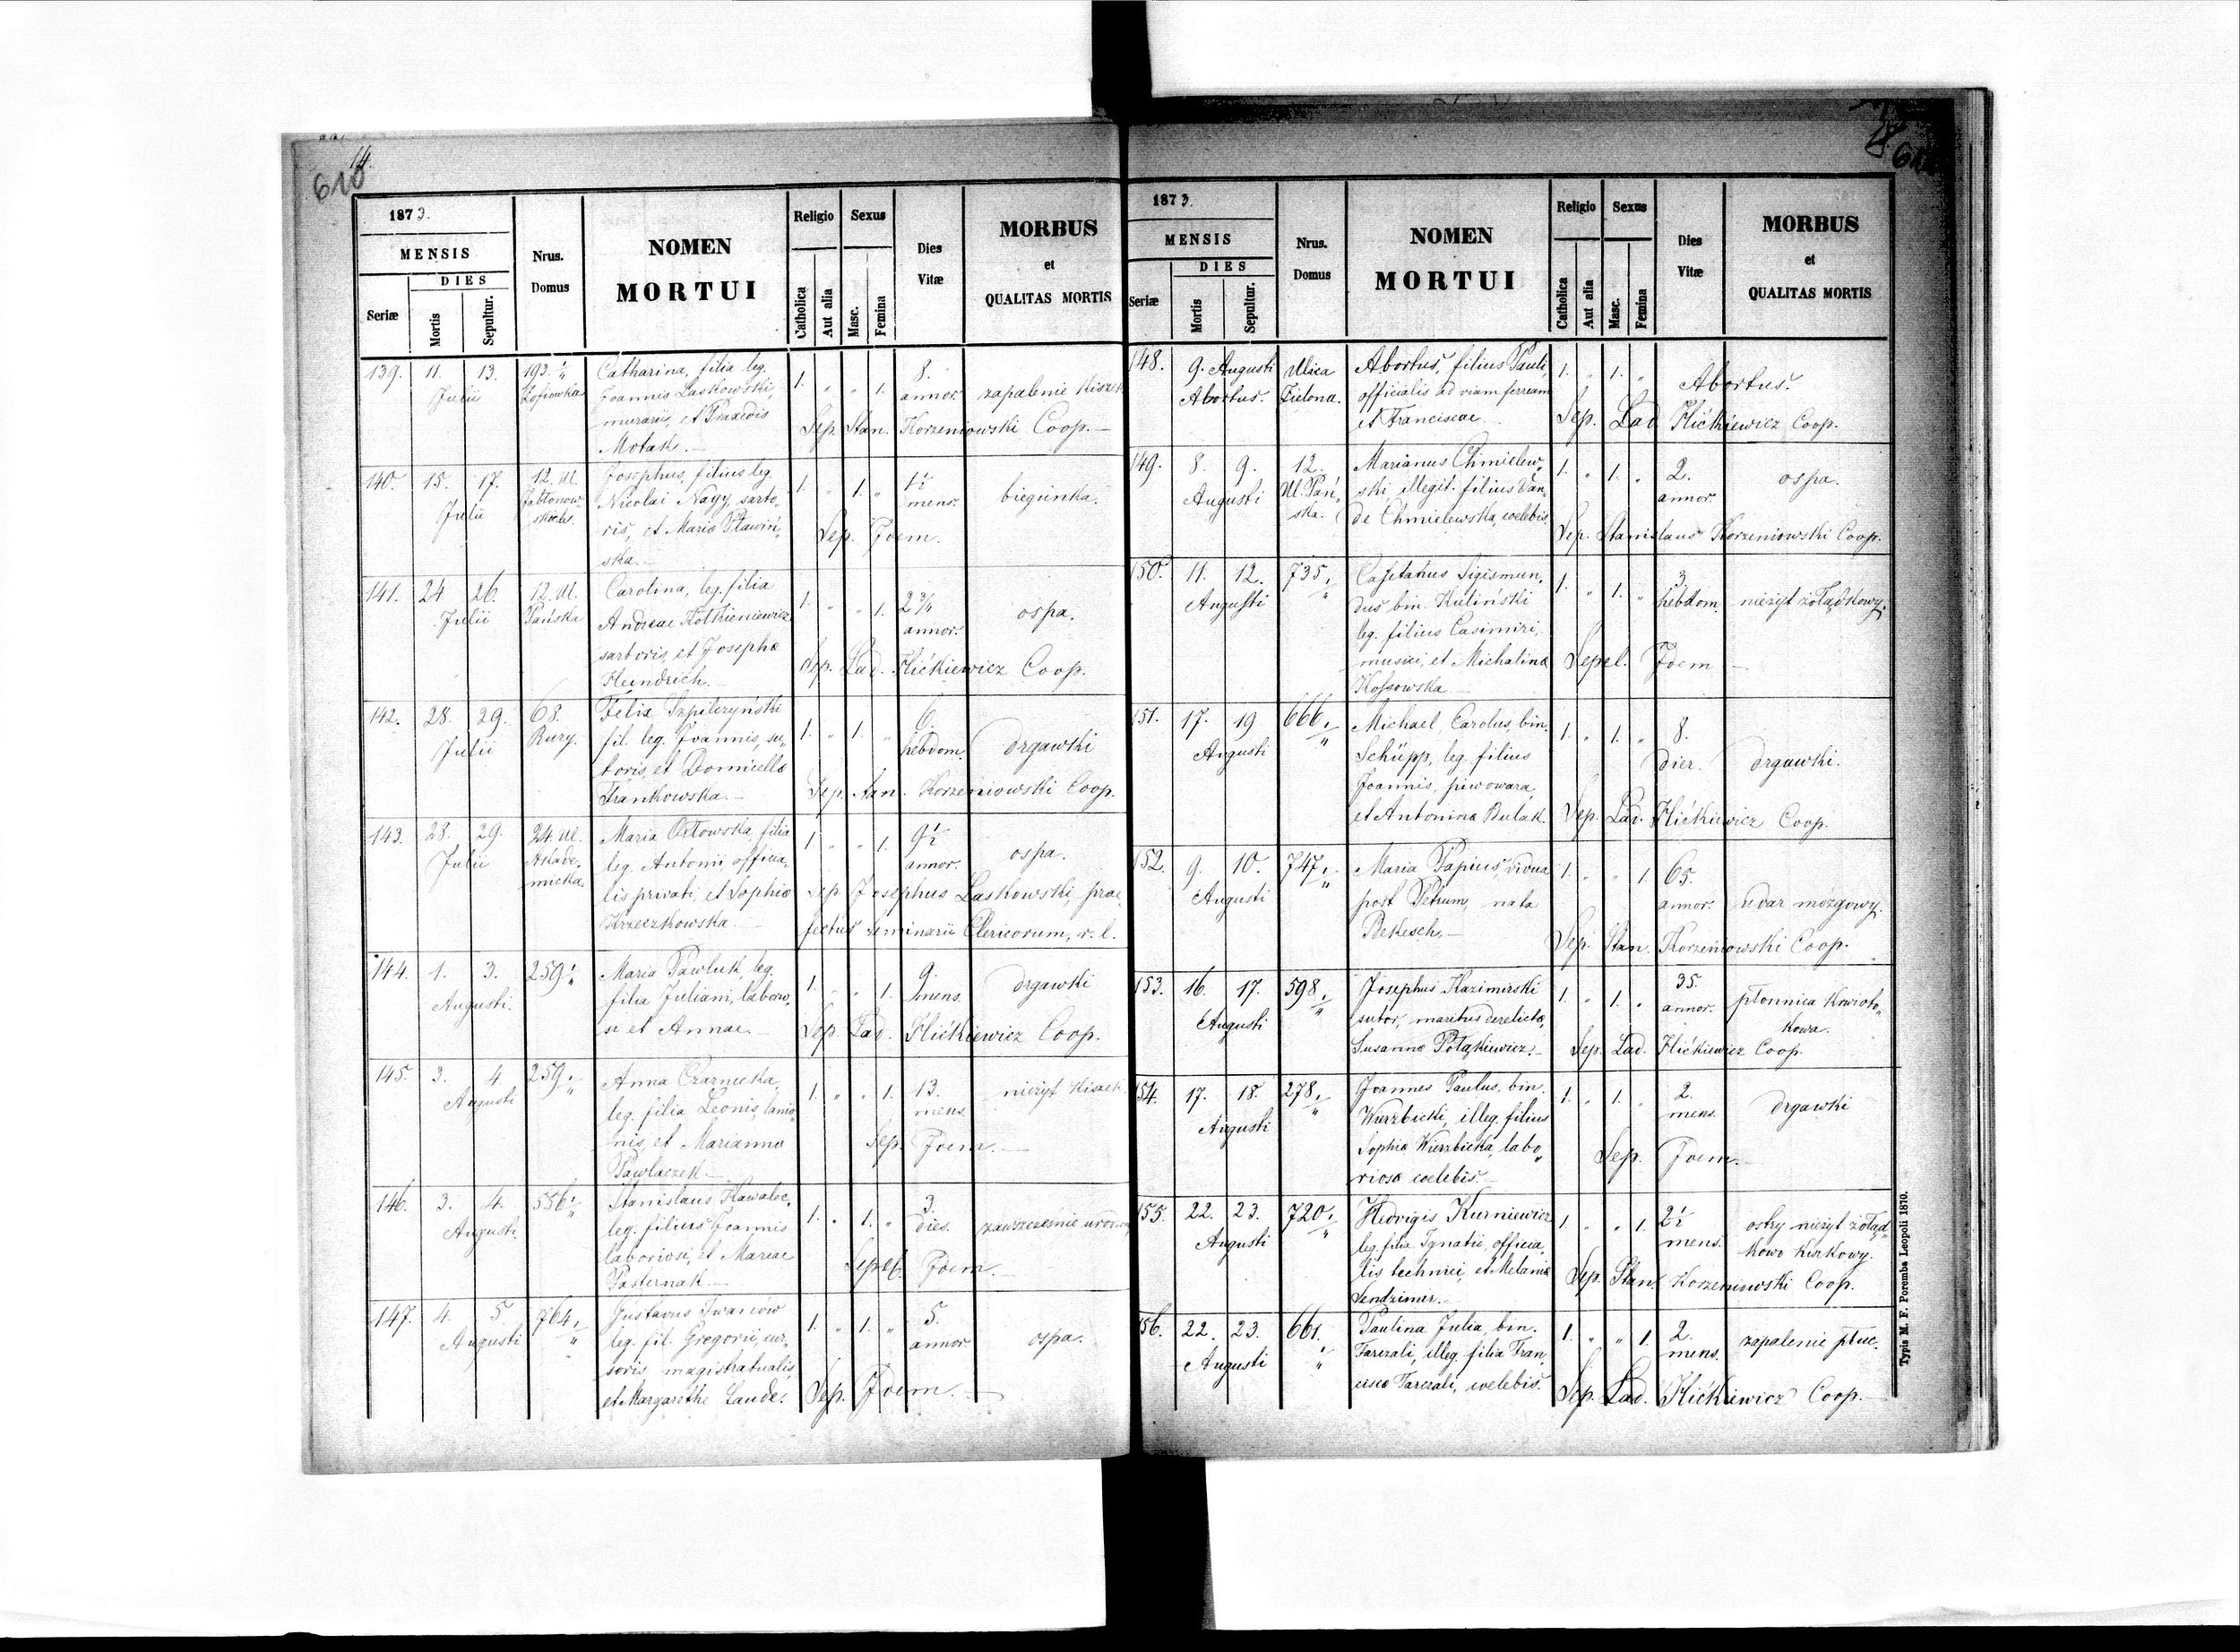 14.
610
1873.
MENSIS
DIES
Seriæ
Mortis
Sepultur.
Nrus.
Domus
NOMEN
MORTUI
Religio
Catholica
Aut alia
Sexus
Masc.
Femina
Dies
Vitæ
MORBUS
et
QUALITAS MORTIS
139. 11. 13. Julii
193. 1/4
Zofiowka
Catharina, filia leg.
Joannis Laskowski,
murarii, et Praxedis
Motak.—
1. „ „ 1.
8.
annor.
zapalenie kiszek
Sep. Stan. Korzeniowski Coop.—
140. 15. 17. Julii
12. Ul.
Jabłonow-
skich.
Josephus, filius leg.
Nicolai Nagy, sarto-
ris, et Mariæ Sławiń-
ska.—
1. „ 1. „
1 1/2
mens.
biegunka.
Sep. Idem.
141. 24 26. Julii
12. Ul.
Pańska
Carolina, leg. filia
Andreae Kothieniewicz
sartoris, et Josephæ
Heindrich.—
1. „ „ 1.
2 3/4
annor.
ospa.
Sep. Lad. Hićkiewicz Coop.
142. 28. 29. Julii
68.
Rury.
Felix Szpilczyński
fil. leg. Joannis, su-
toris, et Domicellæ
Frankowska.—
1. „ 1. „
6.
hebdom.
drgawski
Sep. Stan. Korzeniowski Coop.
143. 28. 29. Julii
24. Ul.
Akade-
micka.
Maria Orłowska, filia
leg. Antonii, officia-
lis privati, et Sophiæ
Krzeczkowska.—
1. „ „ 1.
9 1/2
annor.
ospa.
Sep. Josephus Laskowski, prae-
fectus Seminarii Clericorum, r. l.
144. 1. 3. Augusti.
259 1/4
Maria Pawluk, leg.
filia Juliani, laborio-
si et Annae.—
1. „ „ 1.
9.
mens.
drgawki
Sep. Lad. Hićkiewicz Coop.
145. 3. 4 Augusti
259. 1/4
Anna Czarnecka,
leg. filia Leonis, lanio-
nis, et Mariannæ
Pawlaczek.—
1. „ „ 1.
13.
mens.
nieżyt kiszek
Sep. Idem.—
146. 3. 4. Augusti
556. 1/4
Stanislaus Kawalec,
leg. filius Joannis
laboriosi, et Mariae
Pasternak.—
1. „ 1. „
3.
dies.
zawcześnie
Sepel. Idem.—
147. 4. 5. Augusti
764. 1/4
Gustavus Iwanców
leg. fil. Gregorii, cur-
soris magistratualis,
et Margarethæ Laude.
1. „ 1. „
5.
annor.
ospa.
Sep. Idem.—
1873.
MENSIS
DIES
Seriæ
Mortis
Sepultur.
Nrus.
Domus
NOMEN
MORTUI
Religio
Catholica
Aut alia
Sexus
Masc.
Femina
Dies
Vitæ
MORBUS
et
QUALITAS MORTIS
148. 9. Augusti
Abortus.
Ulica
Zielona.
Abortus, filius Pauli
officialis ad viam ferream
et Franciscae.—
1. „ 1. „
Abortus.
Sep. Lad. Hićkiewicz Coop.
149. 8. 9. Augusti
12.
Ul. Pań-
ska.
Marianus Chmielew-
ski, illegit. filius Van-
dæ Chmielewska, coelebis.
1. „ 1. „
2.
annor.
ospa.
Sep. Stanislaus Korzeniowski Coop.
150. 11. 12. Augusti
735. 1/4
Cajetanus Sigismun-
dus bin. Kuliński
leg. filius Casimiri,
musici, et Michalinæ
Kossowska.—
1. „ 1. „
3.
hebdom.
nieżyt żołądkowy.
Sepel. Idem—
151. 17. 19 Augusti
666. 1/4
Michael Carolus, bin.
Schüpp, leg. filius
Joannis, piwowara,
et Antoninæ Bulak.
1. „ 1. „
8.
dier.
drgawki.
Sep. Lad. Hićkiewicz Coop.
152. 9. 10. Augusti
747. 1/4
Maria Papius, vidua
post Petrum, nata
Bekesch.—
1. „ „ 1.
65.
annor.
udar mózgowy.
Sep. Stan. Korzeniowski Coop.
153. 16. 17. Augusti
598. 1/4
Josephus Kazimirski
sutor, maritus derelictæ,
Susannæ Połąkiewicz.—
1. „ 1. „
35.
annor.
płonnica krwioto-
kowa.
Sep. Lad. Hićkiewicz Coop.
154. 17. 18. Augusti
278. 1/4
Joannes Paulus, bin.
Wierzbicki, illeg. filius
Sophiæ Wierzbicka, labo-
riosæ coelebis.—
1. „ 1. „
2.
mens.
drgawki
Sep. Idem.—
155. 22. 23. Augusti
720. 1/4
Hedvigis Kurniewicz
leg. filia Ignatii, officia-
lis technici, et Melaniæ
Sendzimir.—
1. „ „ 1.
2 1/2
mens.
ostry nieżyt żołąd-
kowo kiszkowy.
Sep. Stan. Korzeniowski Coop.
156. 22. 23. Augusti
661. 1/4
Paulina Julia, bin.
Tarczali, illeg. filia Fran-
ciscæ Tarczali, coelebis.
1. „ „ 1.
2.
mens.
zapalenie płuc.
Sep. Lad. Hićkiewicz Coop.—
Typis M. F. Poremba Leopoli 1870.